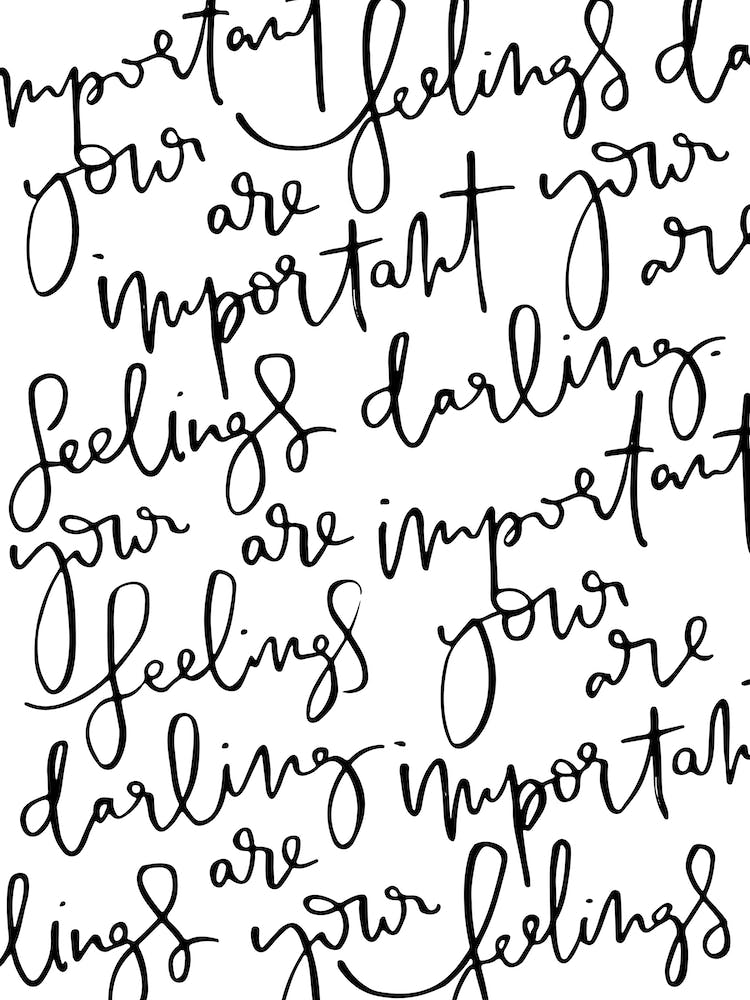 important feelings da
your are important your are
feelings darling.
your are important
feelings your are
darling. importan
lings are your feelings